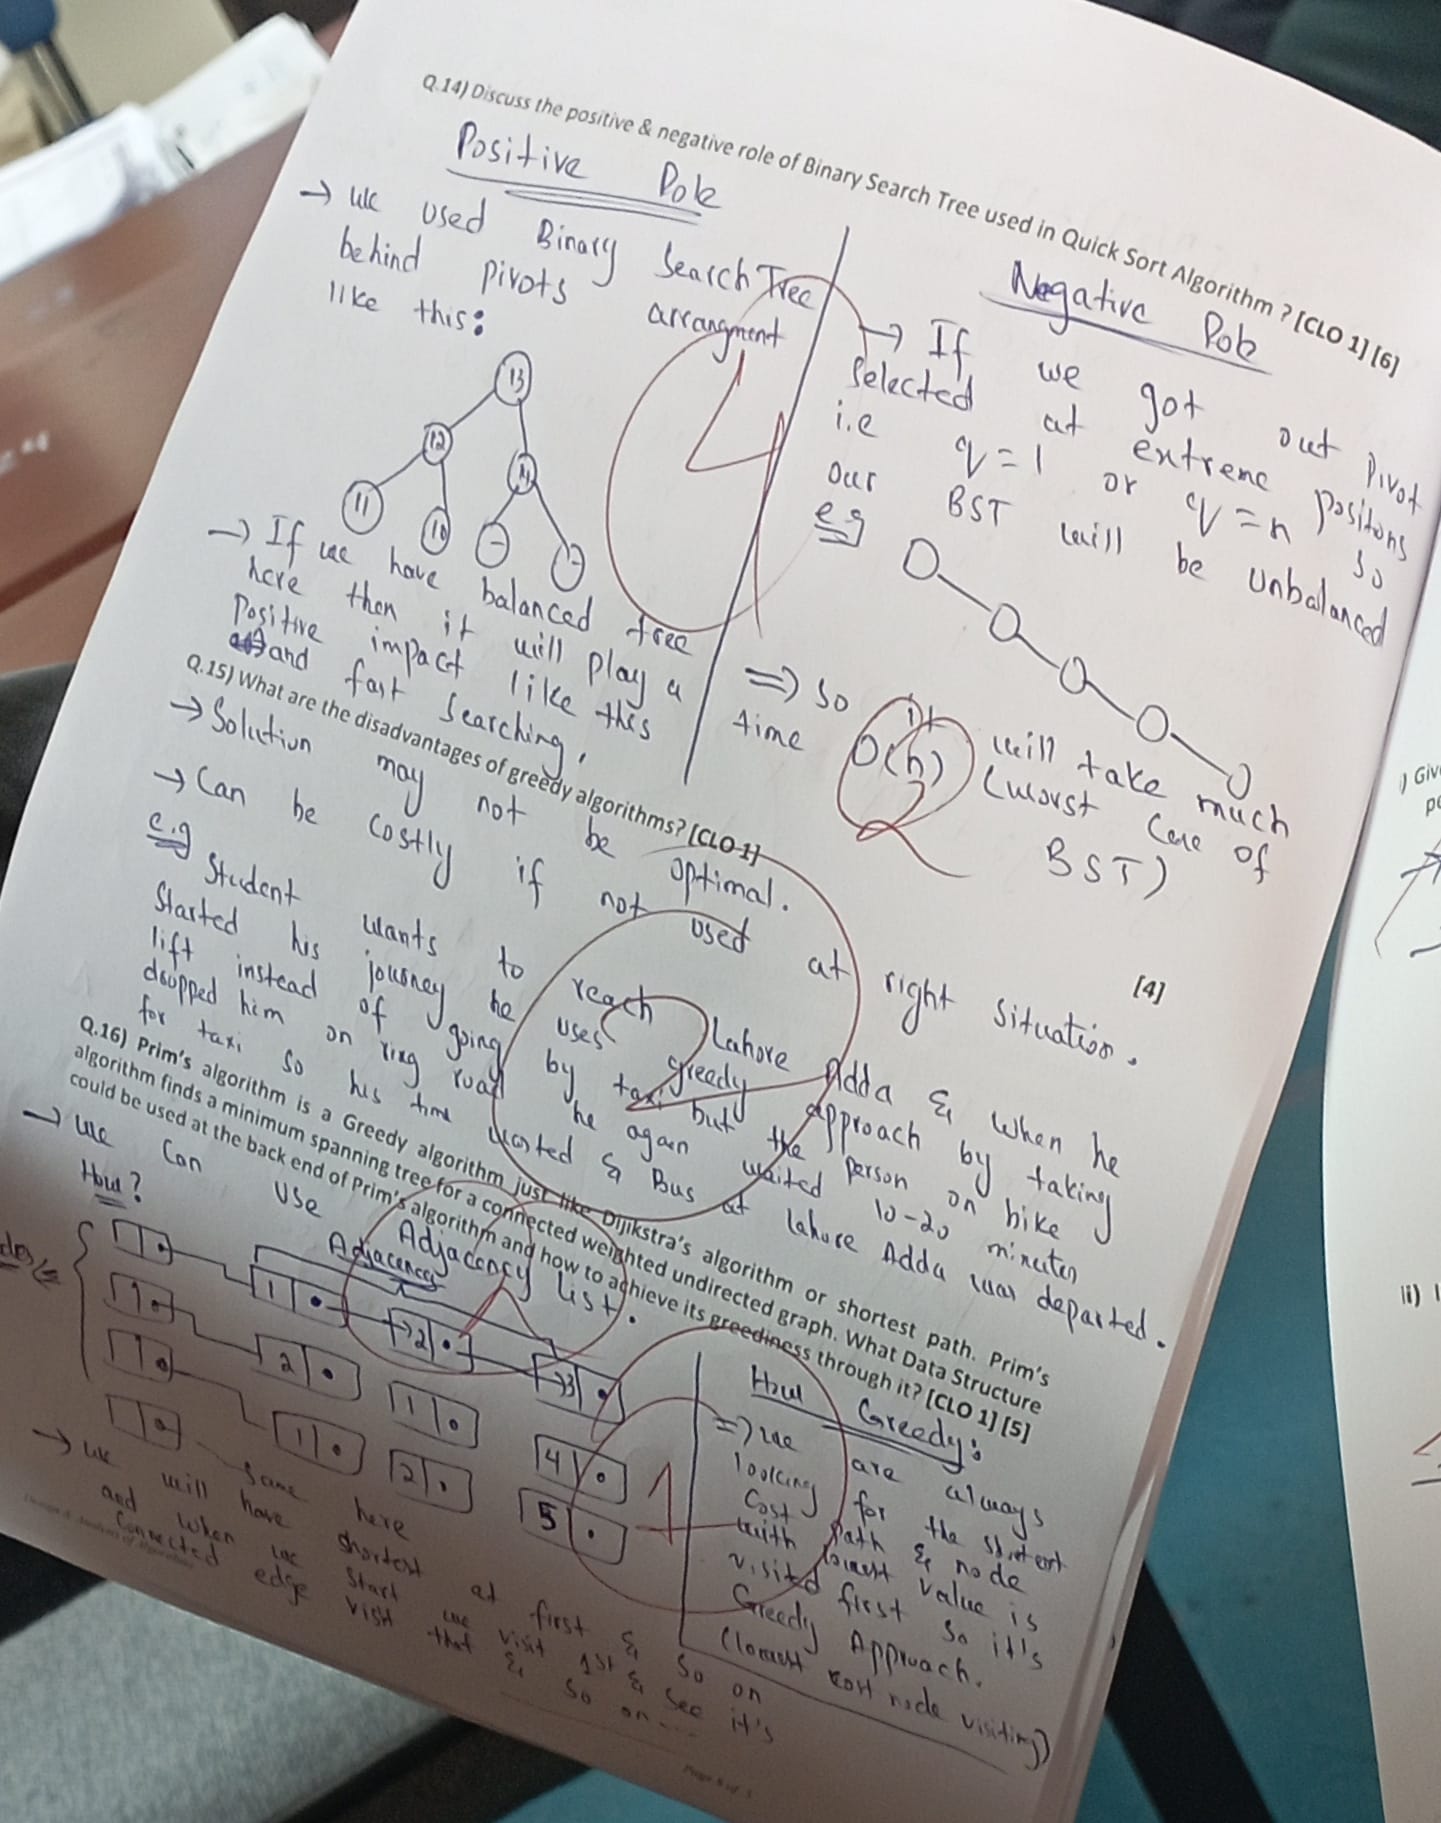 Q.14) Discuss the positive & negative role of Binary Search Tree used in Quick Sort Algorithm ? [CLO 1] [6]
Positive Role
→ we used Binary Search Tree
behind pivots arrangment
like this:
13
12
11
10
→ If we have balanced tree
here then it will play a
Positive impact like this
and fast searching.
4
Negative Role
→ If we got out pivot
selected at extreme positons
i.e q=1 or q=n so
our BST will be unbalanced
e.g
⇒ so it will take much
time O(h) (worst case of
BST)
2
Q.15) What are the disadvantages of greedy algorithms? [CLO 1]
[4]
→ Solution may not be optimal.
→ Can be costly if not used at right situation.
e.g Student wants to reach Lahore Adda & when he
started his journey he uses greedy approach by taking
lift instead of going by taxi but the person on bike
dropped him on ring road he again waited 10-20 minutes
for taxi so his time wasted & Bus at Lahore Adda was departed.
2
Q.16) Prim's algorithm is a Greedy algorithm just like Dijikstra's algorithm or shortest path. Prim's
algorithm finds a minimum spanning tree for a connected weighted undirected graph. What Data Structure
could be used at the back end of Prim's algorithm and how to achieve its greediness through it? [CLO 1] [5]
→ we can use Adjacency list.
How?
Adjacency
1 2 3
2 1 4
1 2 5
same here
→ we will have shortest at first & so on
and when we start we visit 1st & see it's
connected edge visit that & so on ...
1
How Greedy:
⇒ we are always
looking for the shortest
cost path & node
with lowest value is
visited first so it's
Greedy Approach.
(lowest cost node visiting)
Design & Analysis of Algorithms
) Giv
ii) I